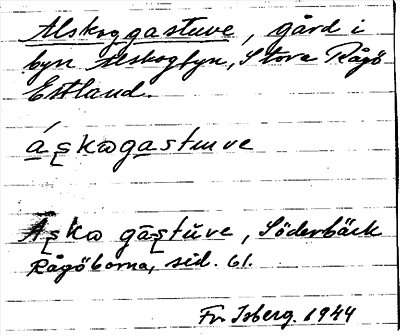 Alskoggastuve, gård i
byn Alskogbyn, Stora Rågö
Estland.
áşkωgastuve
Aşkω gāştŭve, Söderbäck
Rågöborna, sid. 61.
Fr. Isberg. 1944